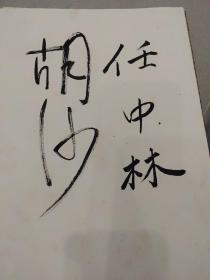 任中林
胡沙